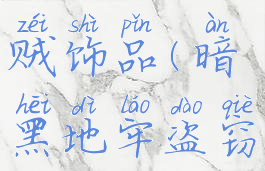 zéi shì pǐn àn
贼饰品(暗
hēi dì láo dào qiè
黑地牢盗窃